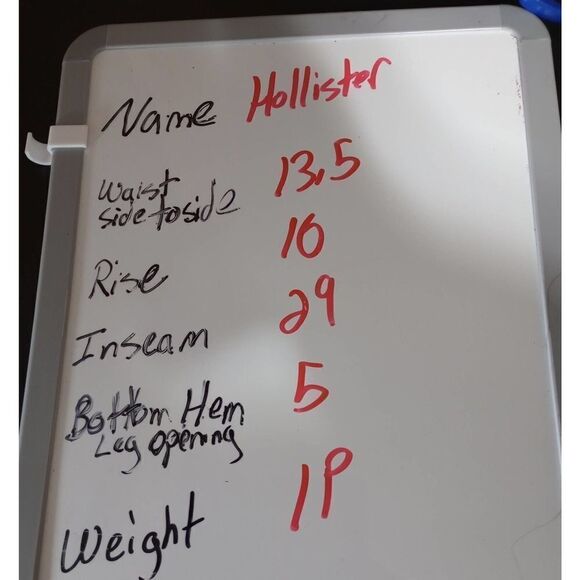 Name Hollister
Waist
side to side 13.5
Rise 10
Inseam 29
Bottom Hem 5
Leg opening
Weight 1P